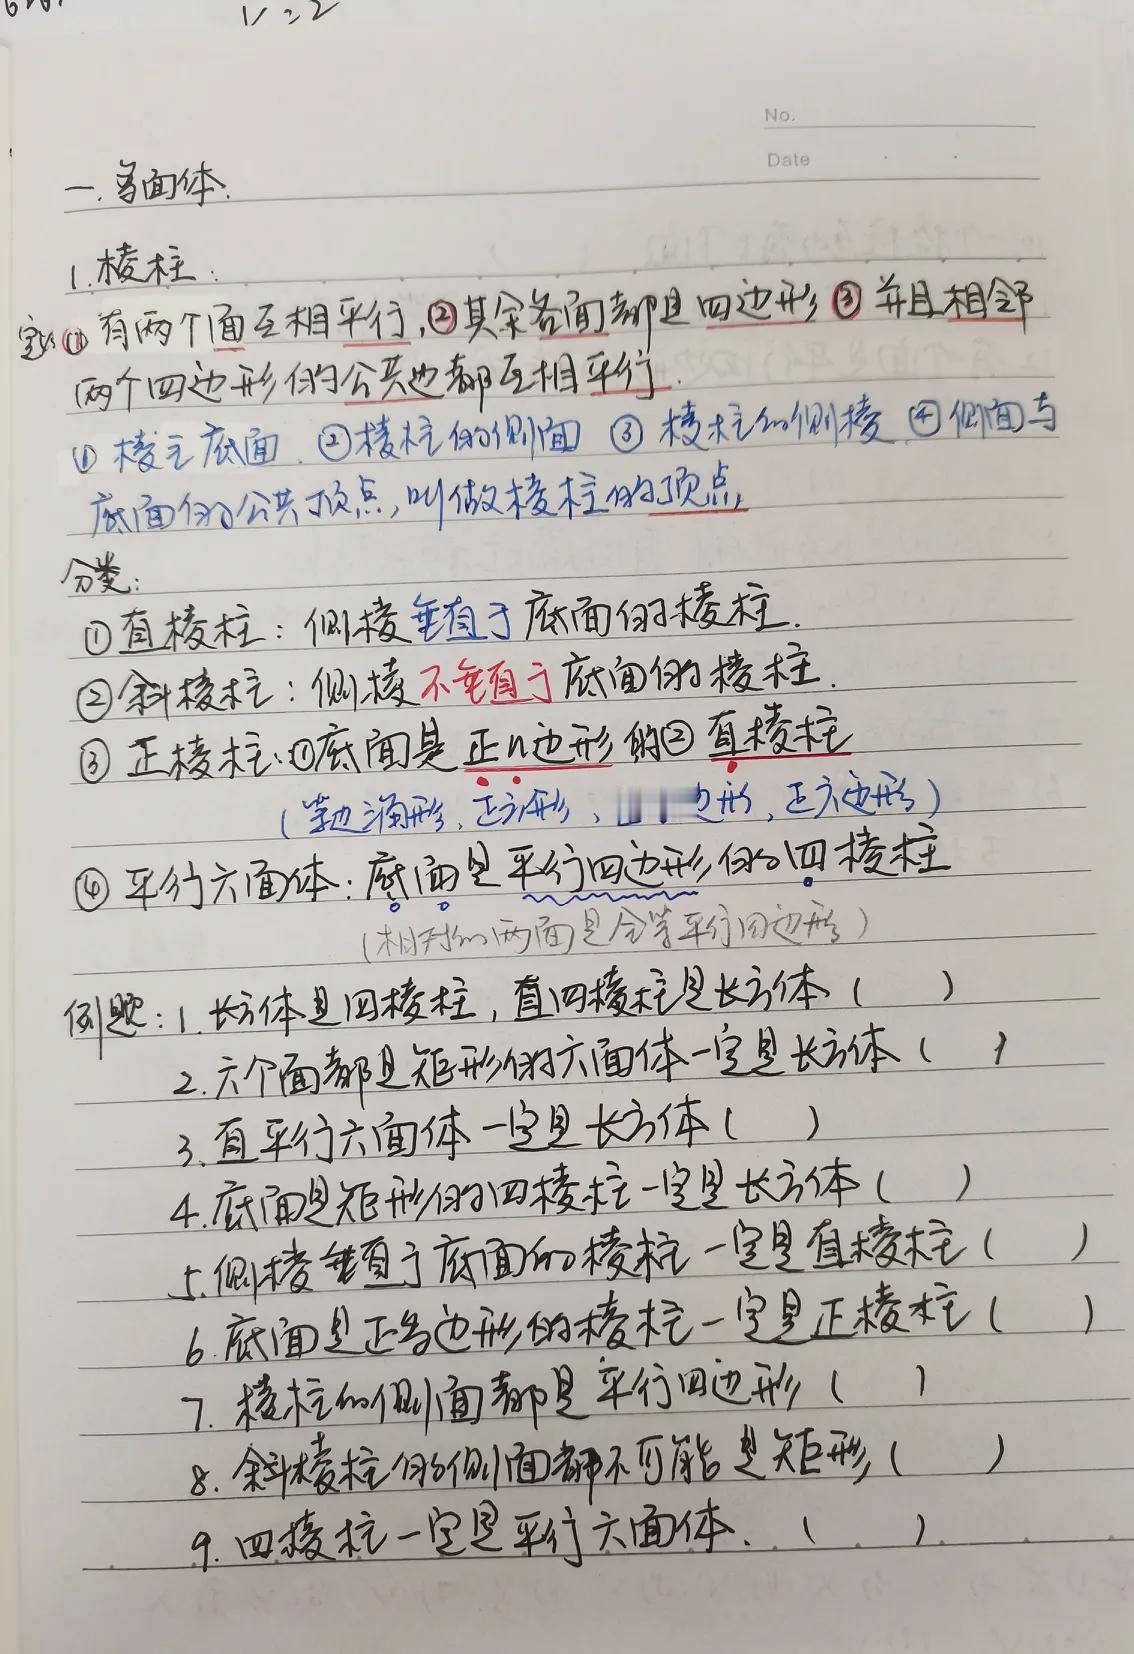 V=2
No.
Date
一.多面体.
1.棱柱:
定义:①有两个面互相平行,②其余各面都是四边形③并且相邻
两个四边形的公共边都互相平行.
①棱柱底面.②棱柱的侧面 ③棱柱的侧棱 ④侧面与
底面的公共顶点,叫做棱柱的顶点,
分类:
①直棱柱:侧棱垂直于底面的棱柱.
②斜棱柱:侧棱不垂直于底面的棱柱.
③正棱柱:①底面是正n边形的②直棱柱
(等边三角形、正方形、边形,正六边形)
④平行六面体:底面是平行四边形的四棱柱
(相对的两面是全等平行四边形)
例题:1.长方体是四棱柱,直四棱柱是长方体( )
2.六个面都是矩形的六面体一定是长方体( )
3.直平行六面体一定是长方体( )
4.底面是矩形的四棱柱一定是长方体( )
5.侧棱垂直于底面的棱柱一定是直棱柱( )
6.底面是正多边形的棱柱一定是正棱柱( )
7.棱柱的侧面都是平行四边形( )
8.斜棱柱的侧面都不可能是矩形( )
9.四棱柱一定是平行六面体.( )